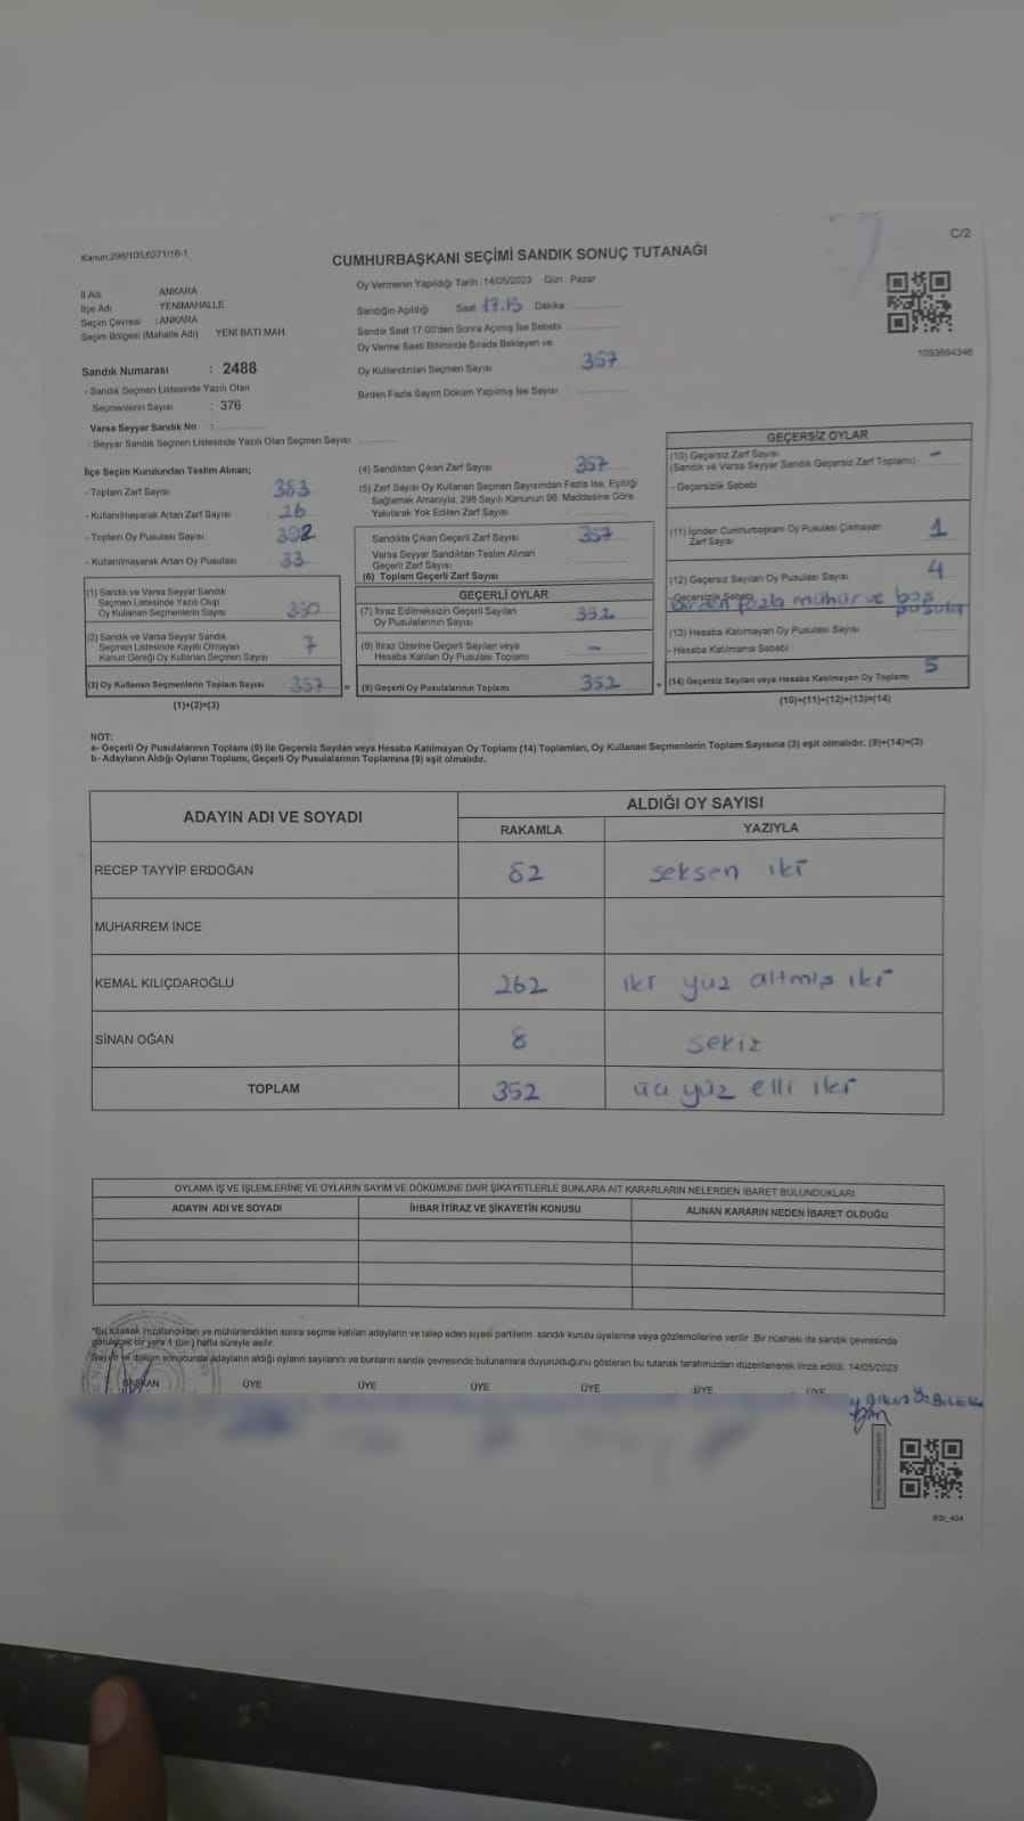 C/2
CUMHURBAŞKANI SEÇİMİ SANDIK SONUÇ TUTANAĞI
İl Adı ANKARA
İlçe Adı YENİMAHALLE
Seçim Çevresi : ANKARA
Seçim Bölgesi (Mahalle Adı) YENİ BATI MAH.
Sandık Numarası : 2488
- Sandık Seçmen Listesinde Yazılı Olan
Seçmenlerin Sayısı : 376
Varsa Seyyar Sandık No :
- Seyyar Sandık Seçmen Listesinde Yazılı Olan Seçmen Sayısı
Oy Vermenin Yapıldığı Tarih : 14/05/2023 Gün : Pazar
Sandığın Açıldığı Saat 17.15 Dakika
Sandık Saat 17:00'den Sonra Açılmış İse Sebebi
Oy Verme Saati Bitiminde Sırada Bekleyen ve
Oy Kullandırılan Seçmen Sayısı 357
Birden Fazla Sayım Döküm Yapılmış İse Sayısı
1093694346
İlçe Seçim Kurulundan Teslim Alınan;
- Toplam Zarf Sayısı 383
- Kullanılmayarak Artan Zarf Sayısı 26
- Toplam Oy Pusulası Sayısı 392
- Kullanılmayarak Artan Oy Pusulası 33
(1) Sandık ve Varsa Seyyar Sandık
Seçmen Listesinde Yazılı Olup
Oy Kullanan Seçmenlerin Sayısı 350
(2) Sandık ve Varsa Seyyar Sandık
Seçmen Listesinde Kayıtlı Olmayan
Kanun Gereği Oy Kullanan Seçmen Sayısı 7
(3) Oy Kullanan Seçmenlerin Toplam Sayısı 357 =
(1)+(2)=(3)
(4) Sandıktan Çıkan Zarf Sayısı 357
(5) Zarf Sayısı Oy Kullanan Seçmen Sayısından Fazla İse, Eşitliği
Sağlamak Amacıyla, 298 Sayılı Kanunun 98. Maddesine Göre
Yakılarak Yok Edilen Zarf Sayısı
Sandıkta Çıkan Geçerli Zarf Sayısı 357
Varsa Seyyar Sandıktan Teslim Alınan
Geçerli Zarf Sayısı
(6) Toplam Geçerli Zarf Sayısı
GEÇERLİ OYLAR
(7) İtiraz Edilmeksizin Geçerli Sayılan
Oy Pusulalarının Sayısı 352
(8) İtiraz Üzerine Geçerli Sayılan veya
Hesaba Katılan Oy Pusulası Toplamı -
(9) Geçerli Oy Pusulalarının Toplamı 352 +
GEÇERSİZ OYLAR
(10) Geçersiz Zarf Sayısı
(Sandık ve Varsa Seyyar Sandık Geçersiz Zarf Toplamı) -
- Geçersizlik Sebebi
(11) İçinden Cumhurbaşkanı Oy Pusulası Çıkmayan
Zarf Sayısı 1
(12) Geçersiz Sayılan Oy Pusulası Sayısı 4
- Geçersizlik Sebebi
birden fazla mühür ve boş pusula
(13) Hesaba Katılmayan Oy Pusulası Sayısı
- Hesaba Katılmama Sebebi
(14) Geçersiz Sayılan veya Hesaba Katılmayan Oy Toplamı 5
(10)+(11)+(12)+(13)=(14)
NOT:
a- Geçerli Oy Pusulalarının Toplamı (9) ile Geçersiz Sayılan veya Hesaba Katılmayan Oy Toplamı (14) Toplamları, Oy Kullanan Seçmenlerin Toplam Sayısına (3) eşit olmalıdır. (9)+(14)=(3)
b- Adayların Aldığı Oyların Toplamı, Geçerli Oy Pusulalarının Toplamına (9) eşit olmalıdır.
ADAYIN ADI VE SOYADI
ALDIĞI OY SAYISI
RAKAMLA YAZIYLA
RECEP TAYYİP ERDOĞAN 82 seksen iki
MUHARREM İNCE
KEMAL KILIÇDAROĞLU 262 iki yüz altmış iki
SİNAN OĞAN 8 sekiz
TOPLAM 352 üç yüz elli iki
OYLAMA İŞ VE İŞLEMLERİNE VE OYLARIN SAYIM VE DÖKÜMÜNE DAİR ŞİKAYETLERLE BUNLARA AİT KARARLARIN NELERDEN İBARET BULUNDUKLARI
ADAYIN ADI VE SOYADI İHBAR İTİRAZ VE ŞİKAYETİN KONUSU ALINAN KARARIN NEDEN İBARET OLDUĞU
*Bu tutanak imzalandıktan ve mühürlendikten sonra seçime katılan adayların ve talep eden siyasi partilerin sandık kurulu üyelerine veya gözlemcilerine verilir. Bir nüshası da sandık çevresinde
görülecek bir yere 1 (bir) hafta süreyle asılır.
Sayım ve döküm sonucunda adayların aldığı oyların sayılarını ve bunların sandık çevresinde bulunanlara duyurulduğunu gösteren bu tutanak tarafımızdan düzenlenerek imza edildi. 14/05/2023
BAŞKAN ÜYE ÜYE ÜYE ÜYE ÜYE ÜYE